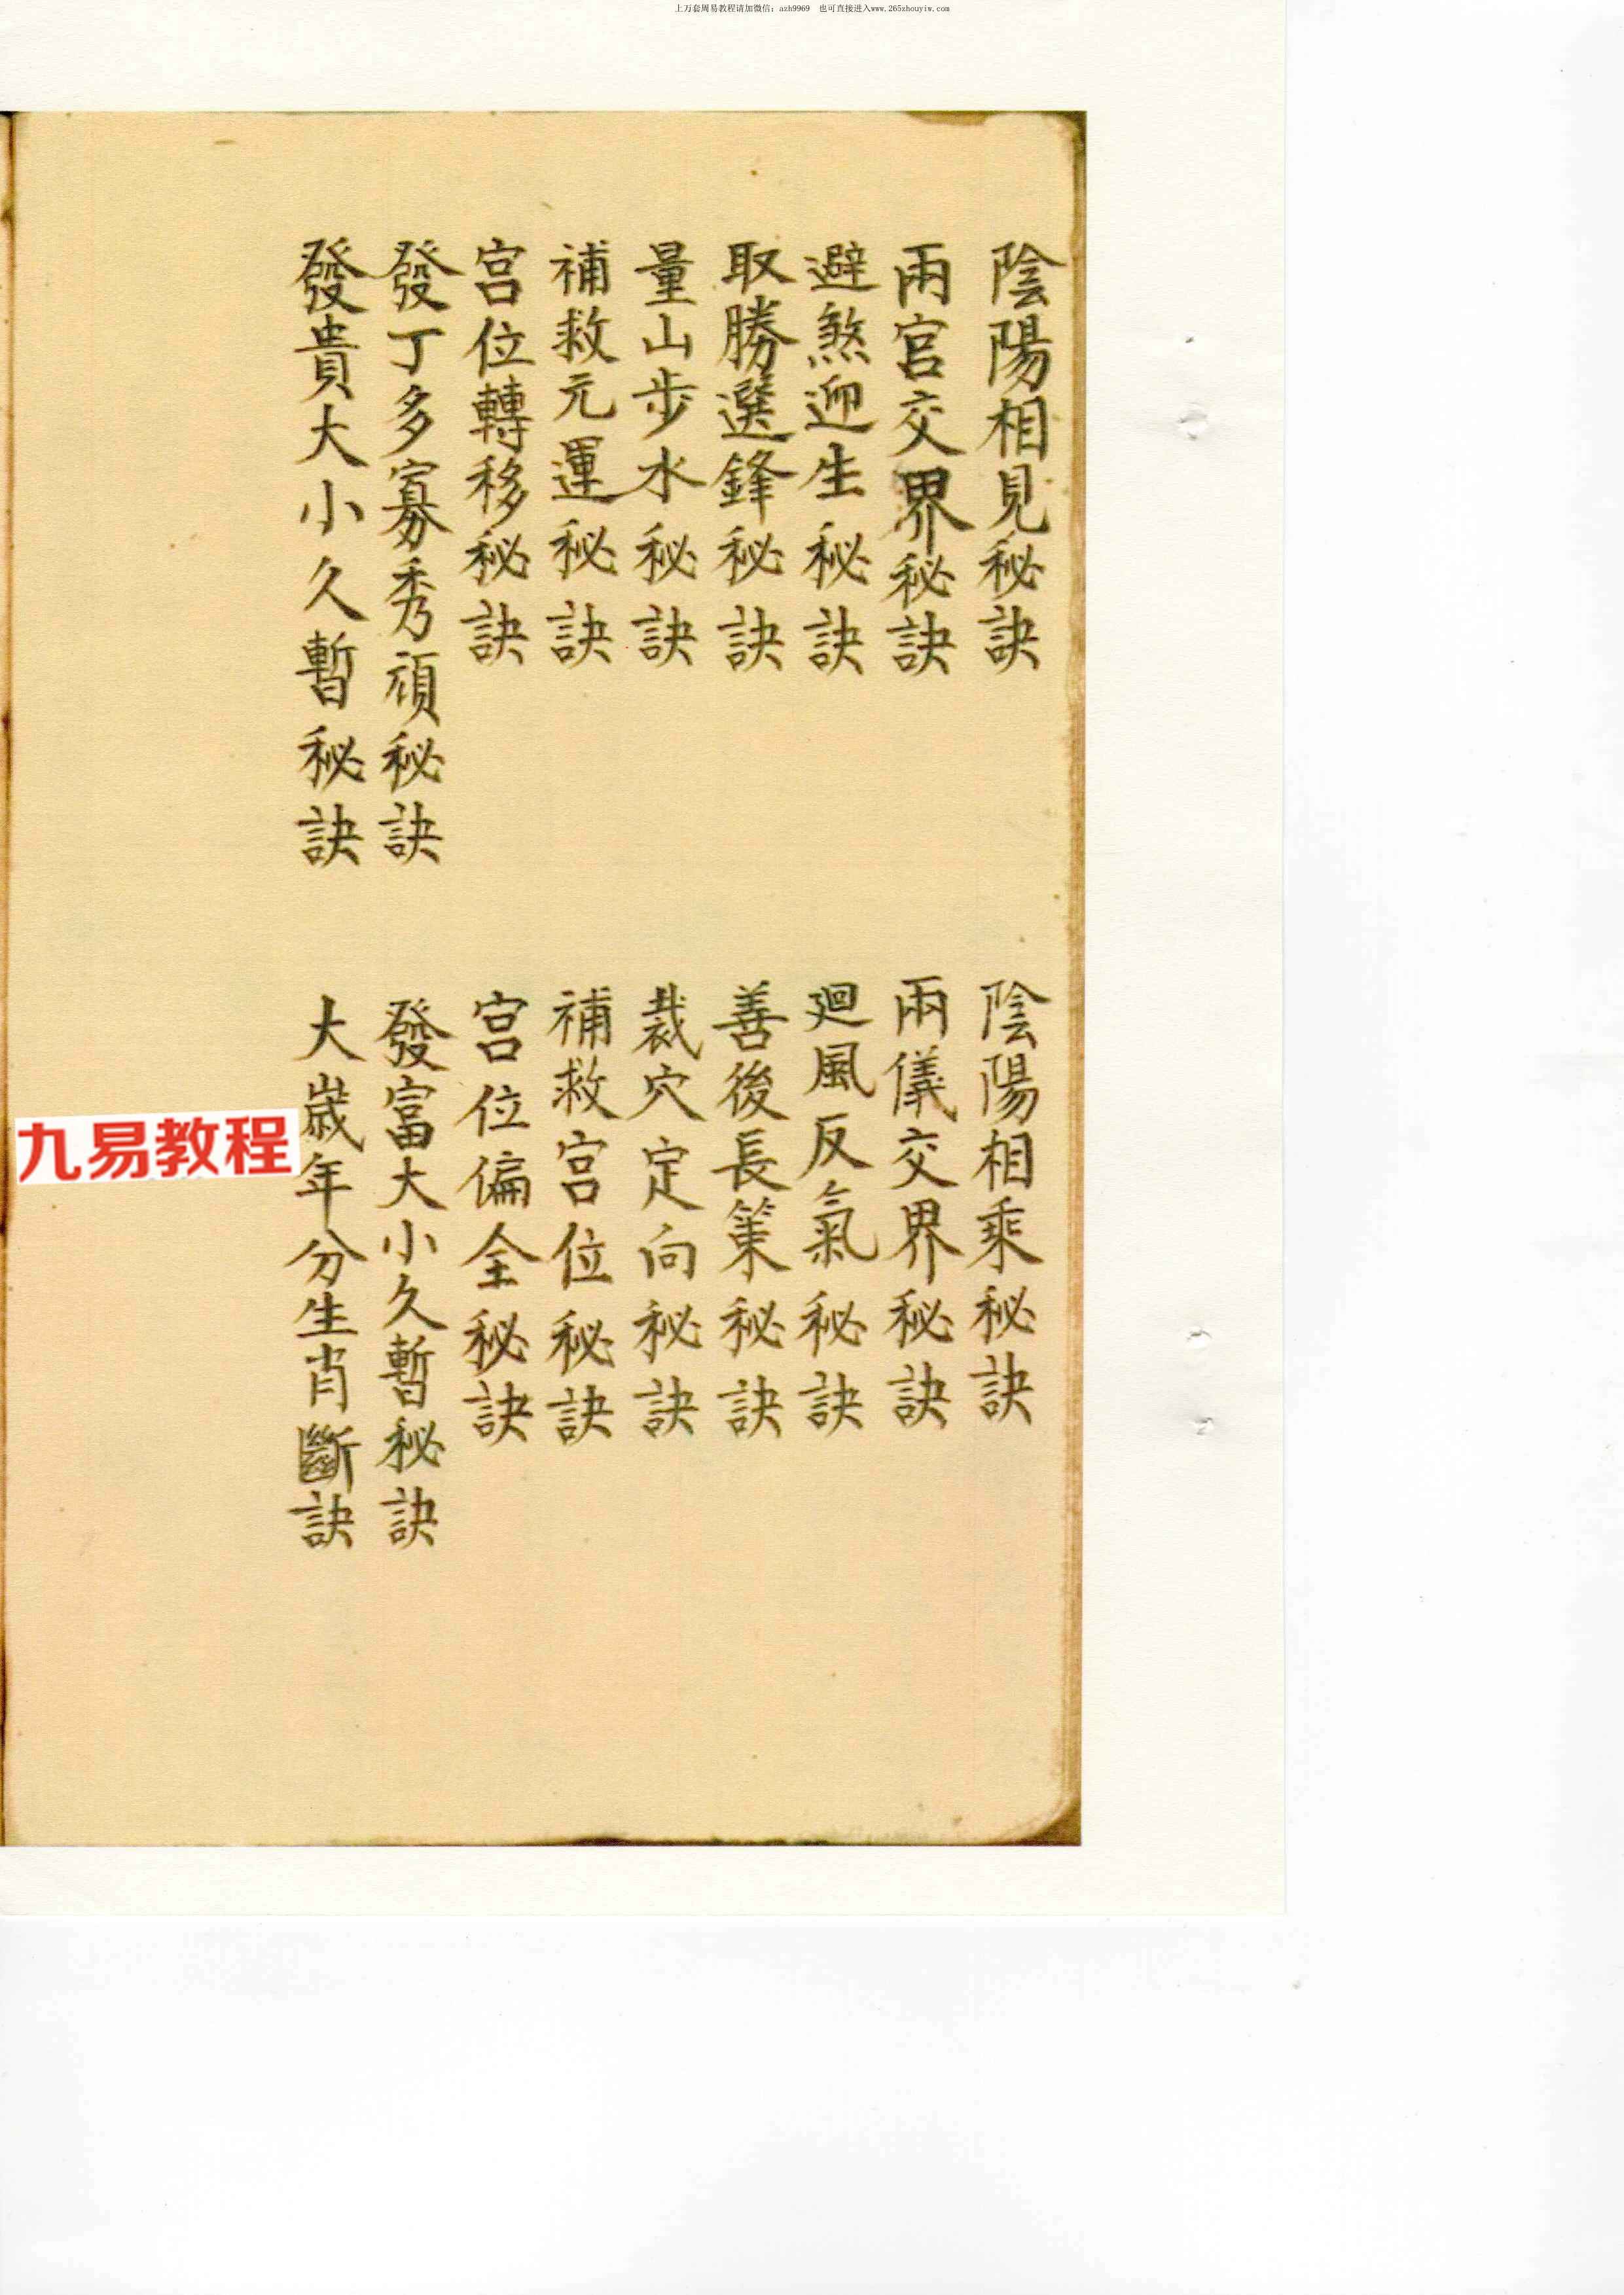 上万套周易教程请加微信：azh9969 也可直接进入www.265zhouyiw.com
陰陽相見秘訣
陰陽相乘秘訣
兩宮交界秘訣
兩儀交界秘訣
避煞迎生秘訣
廻風反氣秘訣
取勝選鋒秘訣
善後長策秘訣
量山步水秘訣
裁穴定向秘訣
補救元運秘訣
補救宮位秘訣
宮位轉移秘訣
宮位偏全秘訣
發丁多寡秀頑秘訣
發富大小久暫秘訣
發貴大小久暫秘訣
大嵗年分生肖斷訣
九易教程